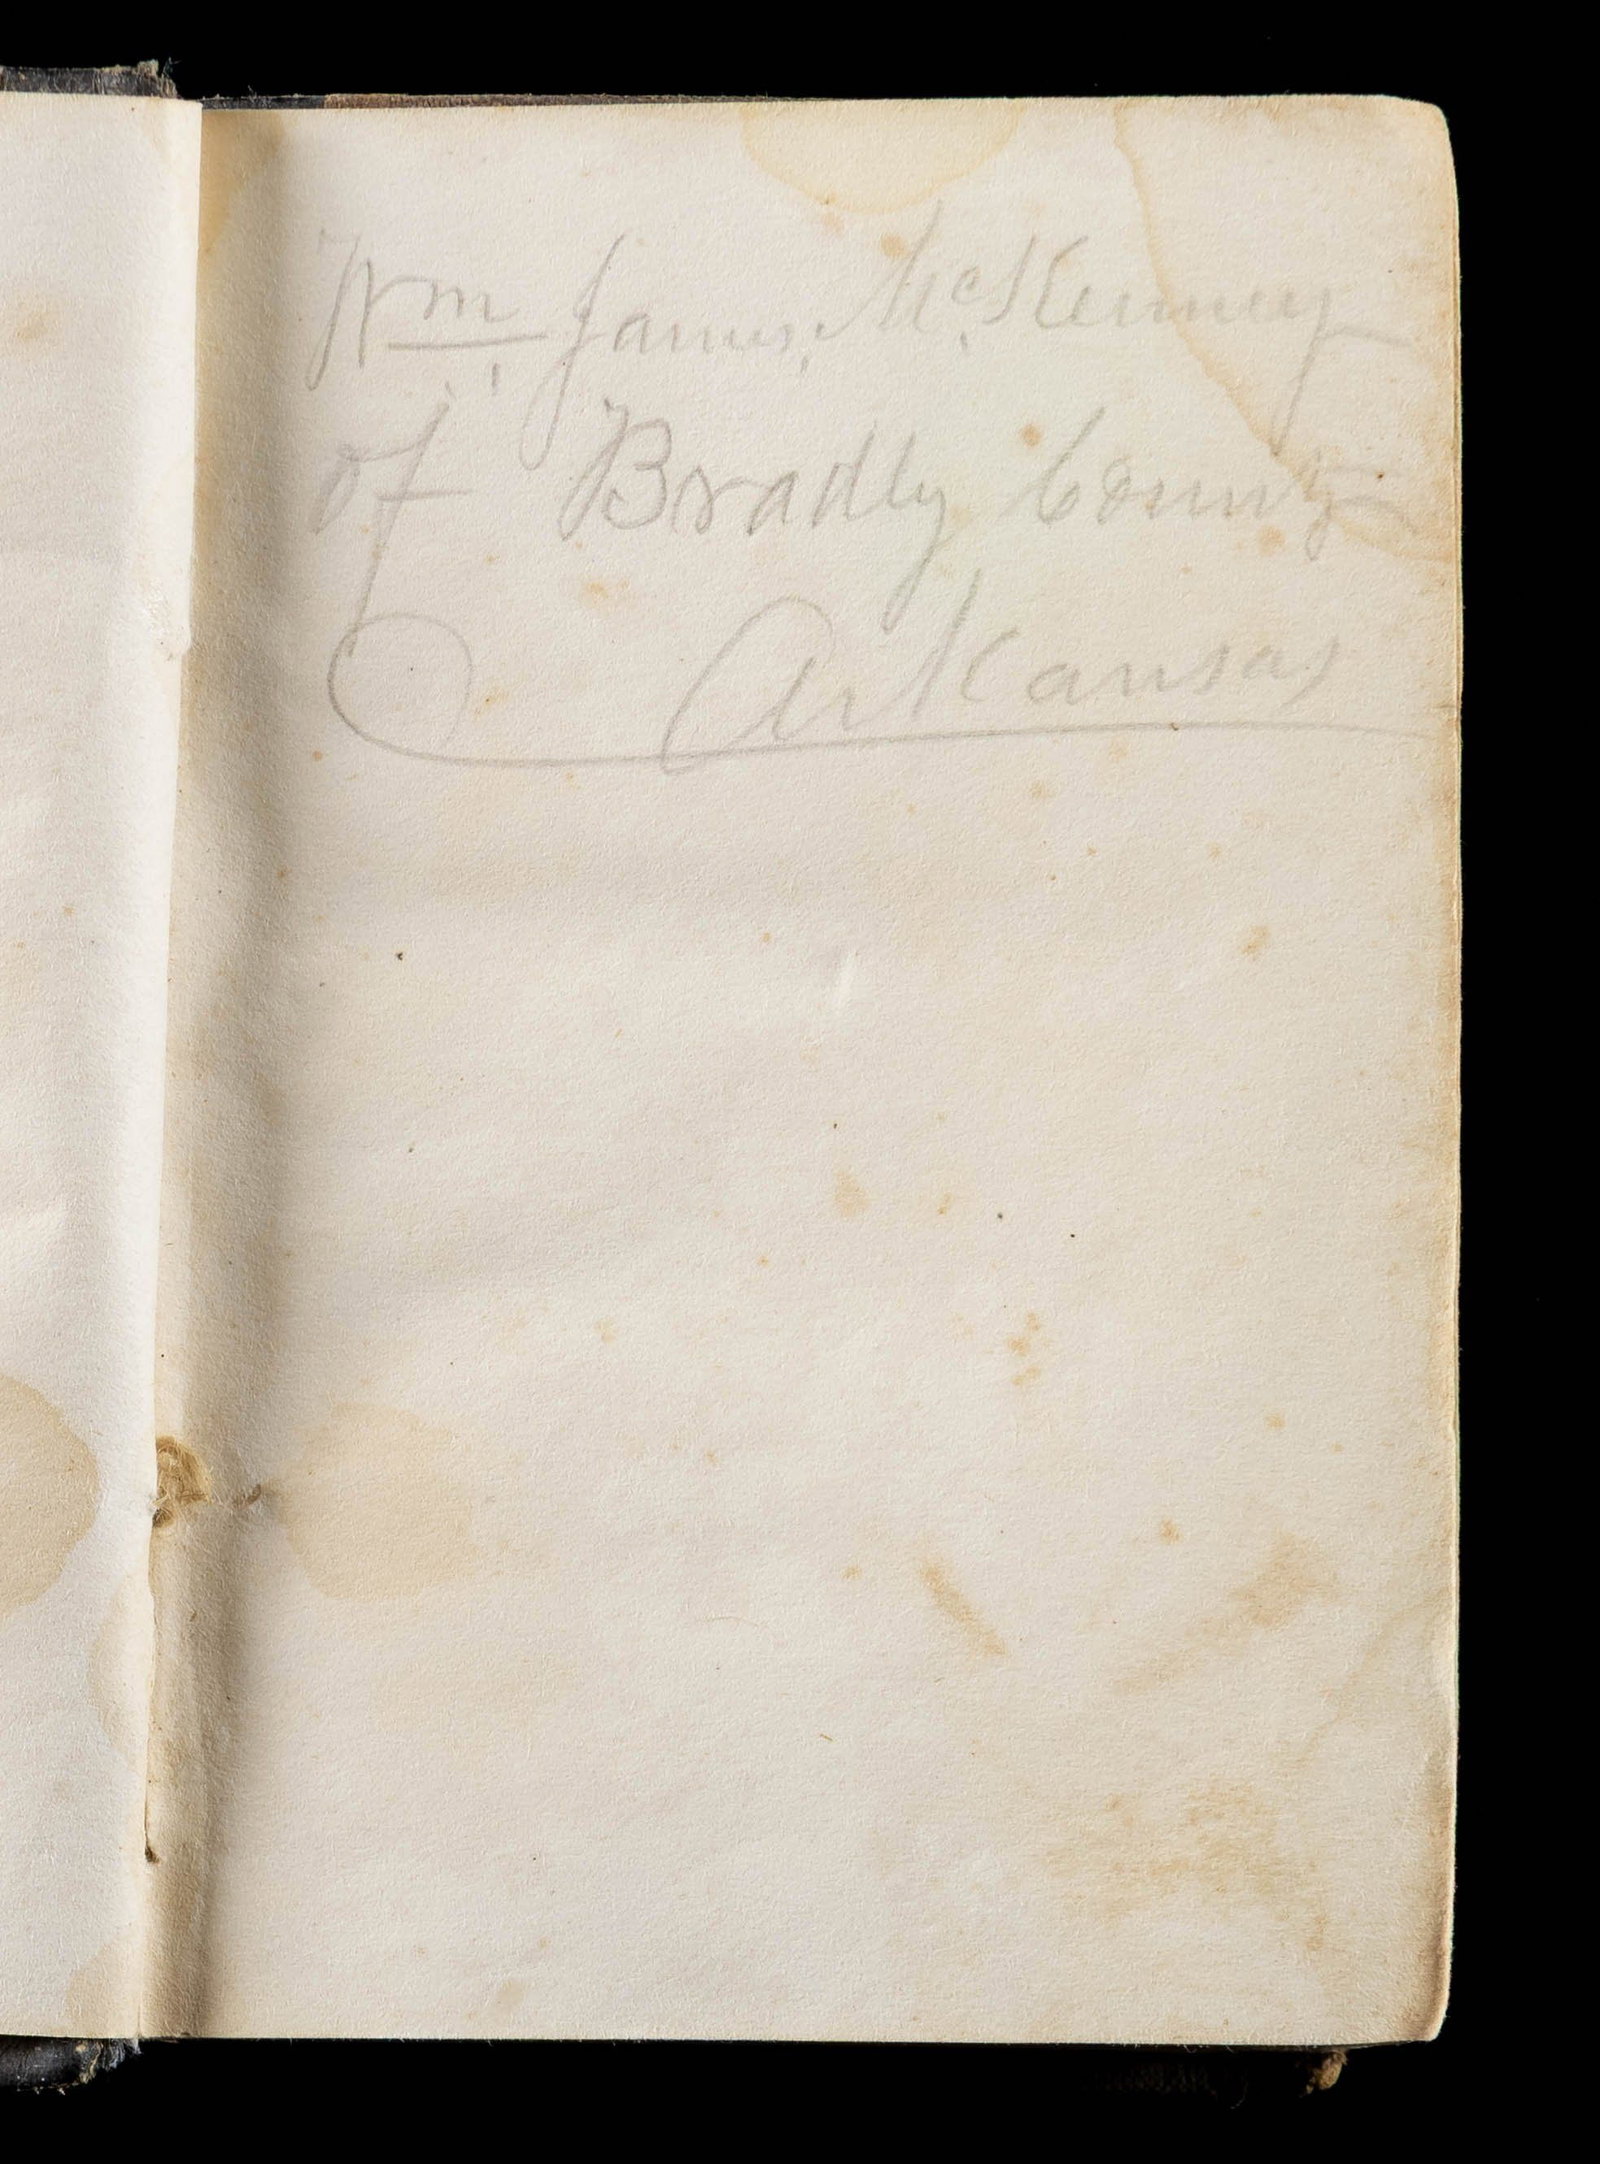 Wm. James. McKenney
of Bradly County
Arkansas